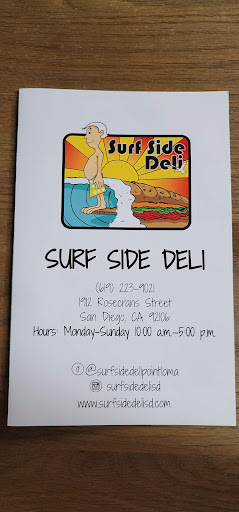 Surf Side
Deli
SURF SIDE DELI
(619) 223-9021
1912 Rosecrans Street
San Diego, CA 92106
Hours: Monday-Sunday 10:00 a.m.-5:00 p.m.
@surfsidedelipointloma
surfsidedelisd
www.surfsidedelisd.com